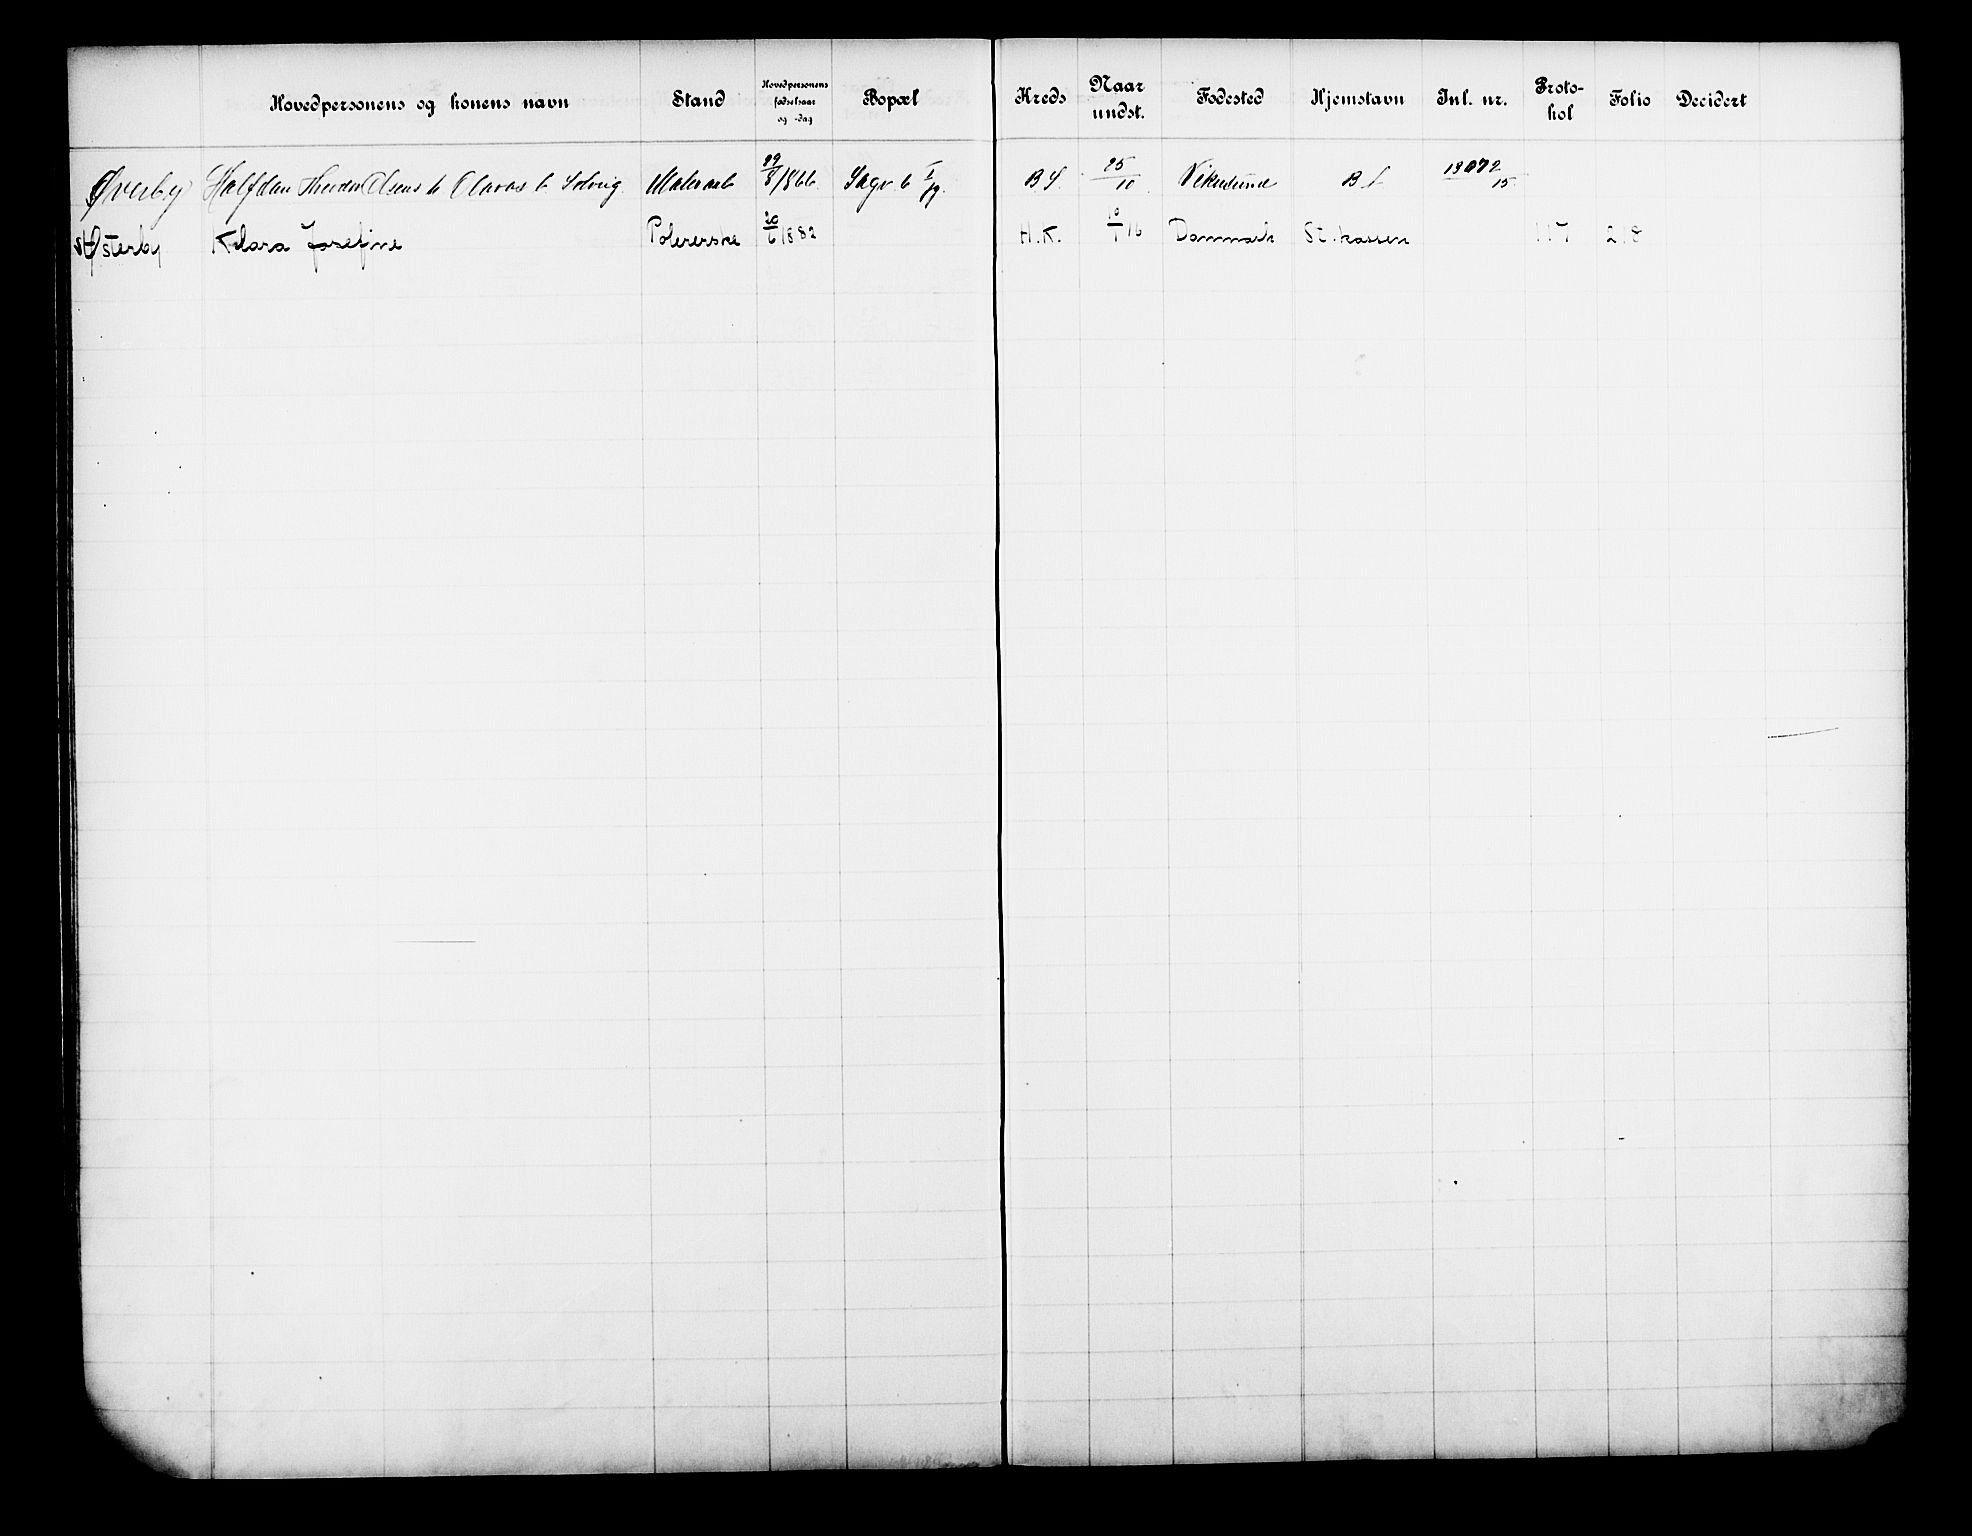 Hovedpersonens og konens navn Stand Hovedpersonens fødselsaar og -dag Bopæl Kreds Naar undst. Fødested Hjemstavn Inl. nr. Proto-kol Folio Decidert
Øverby Halfdan Theodor Olsens Olavas Solveig Malerarb 8/1866 Sagv 6 BS. 25/10 Vikersund B 13072/15
Østerby Klara Josefine Polererske 20/6 1882 H.K. 10/1 16 Danmark St.kassen 117 218